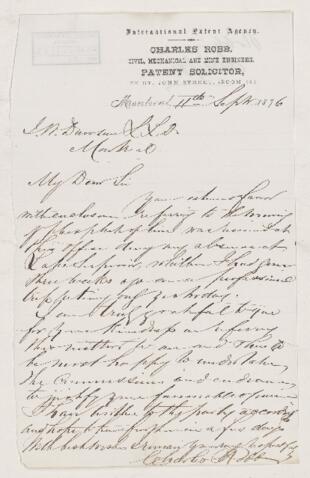 International Patent Agency.
CHARLES ROBB,
CIVIL, MECHANICAL AND MINE ENGINEER,
PATENT SOLICITOR,
ST. JOHN STREET, (ROOM
Montreal 11th Sept 1876
J. W. Dawson L.L.D.
Montreal
My Dear Sir
Your esteemed favor
with enclosure referring to the mining
of phosphate of lime was received at
this office during my absence at
Lake Superior, whither I had gone
three weeks ago on a professional
trip, returning only yesterday.
I am truly grateful to you
for your kindness in referring
this matter to me and shall
be most happy to undertake
the Commission and endeavour
to justify your favourable opinion
I have written to the party accordingly
and hope to hear from him in a few days
With best wishes I remain yours very respectfully
Charles Robb